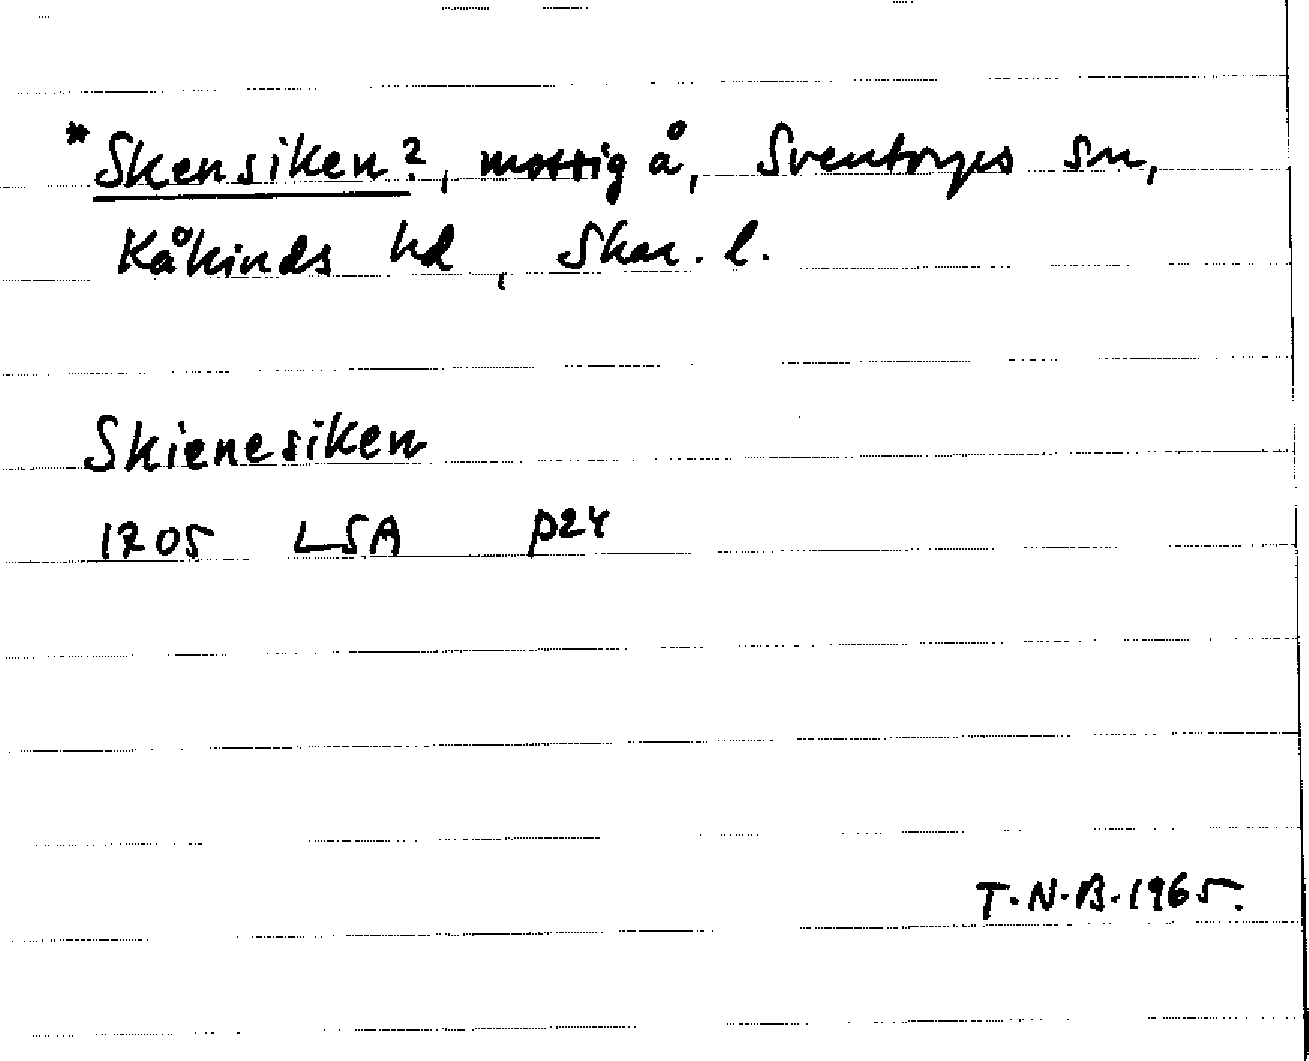 *Skensiken?, mossig å, Sventorps sn,
Kåkinds hd, Skar. l.
Skienesiken
1705 LSA P24
T.N.B. 1965.